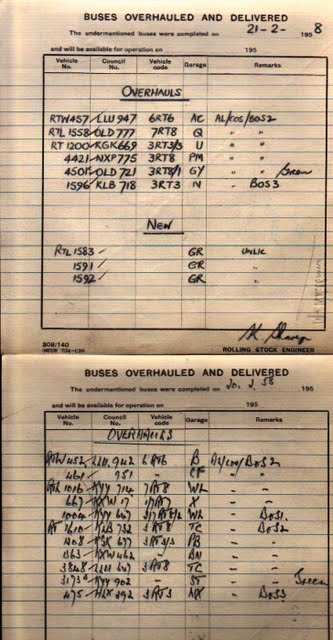 BUSES OVERHAULED AND DELIVERED
The undermentioned buses were completed on 21-2- 1958
and will be available for operation on 195
Vehicle No. Council No. Vehicle code Garage Remarks
OVERHAULS
RTW457 LLU 947 6RT6 AC AL/COS/BOS2
RTL 1558 OLD 777 7RT8 Q " "
RT 1200 KGK 669 3RT3/3 U " "
4421 NXP 775 3RT8 PM " "
4501 OLD 721 3RT8/1 GY " " Green
1596 KLB 718 3RT3 N " BOS3
NEW
RTL 1583 GR
1591 GR "
1592 GR "
308/140
ROLLING STOCK ENGINEER
BUSES OVERHAULED AND DELIVERED
The undermentioned buses were completed on 58 195
and will be available for operation on 195
Vehicle No. Council No. Vehicle code Garage Remarks
OVERHAULS
RTW 452 LLU 942 6RT6 B AL/COS/BOS2
461 951 CF " "
1016 KYY 714 7RT8 " "
667 KXW 17
1004 KYY 647 BOS1
RT 1610 KLB 732 3RT8 TC " BOS2
1208 KGK 677 3RT3/3 PB " "
HXW 462 BN " "
3848 LLU 647 3RT8 TC " "
3173 KYY 902 ST " " Green
475 HLX 292 3RT3 NX " BOS3